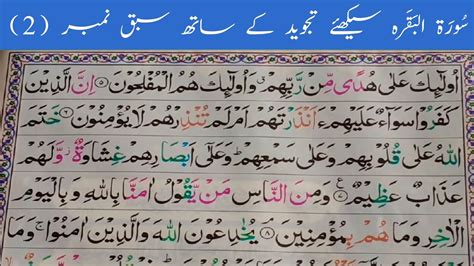 سُورَۃ البَقَرہ سیکھئے تجوید کے ساتھ سبق نمبر (2)
اُولٰٓئِكَ عَلٰى هُدًى مِّنْ رَّبِّهِمْ وَ اُولٰٓئِكَ هُمُ الْمُفْلِحُوْنَ ۵ اِنَّ الَّذِيْنَ
كَفَرُوْا سَوَآءٌ عَلَيْهِمْ ءَاَنْذَرْتَهُمْ اَمْ لَمْ تُنْذِرْهُمْ لَا يُؤْمِنُوْنَ ۶ خَتَمَ
اللّٰهُ عَلٰى قُلُوْبِهِمْ وَعَلٰى سَمْعِهِمْ وَعَلٰٓى اَبْصَارِهِمْ غِشَاوَةٌ وَّلَهُمْ
عَذَابٌ عَظِيْمٌ ۷ وَمِنَ النَّاسِ مَنْ يَّقُوْلُ اٰمَنَّا بِاللّٰهِ وَ بِالْيَوْمِ
الْاٰخِرِ وَمَا هُمْ بِمُؤْمِنِيْنَ ۸ يُخٰدِعُوْنَ اللّٰهَ وَالَّذِيْنَ اٰمَنُوْا ۚ وَمَا